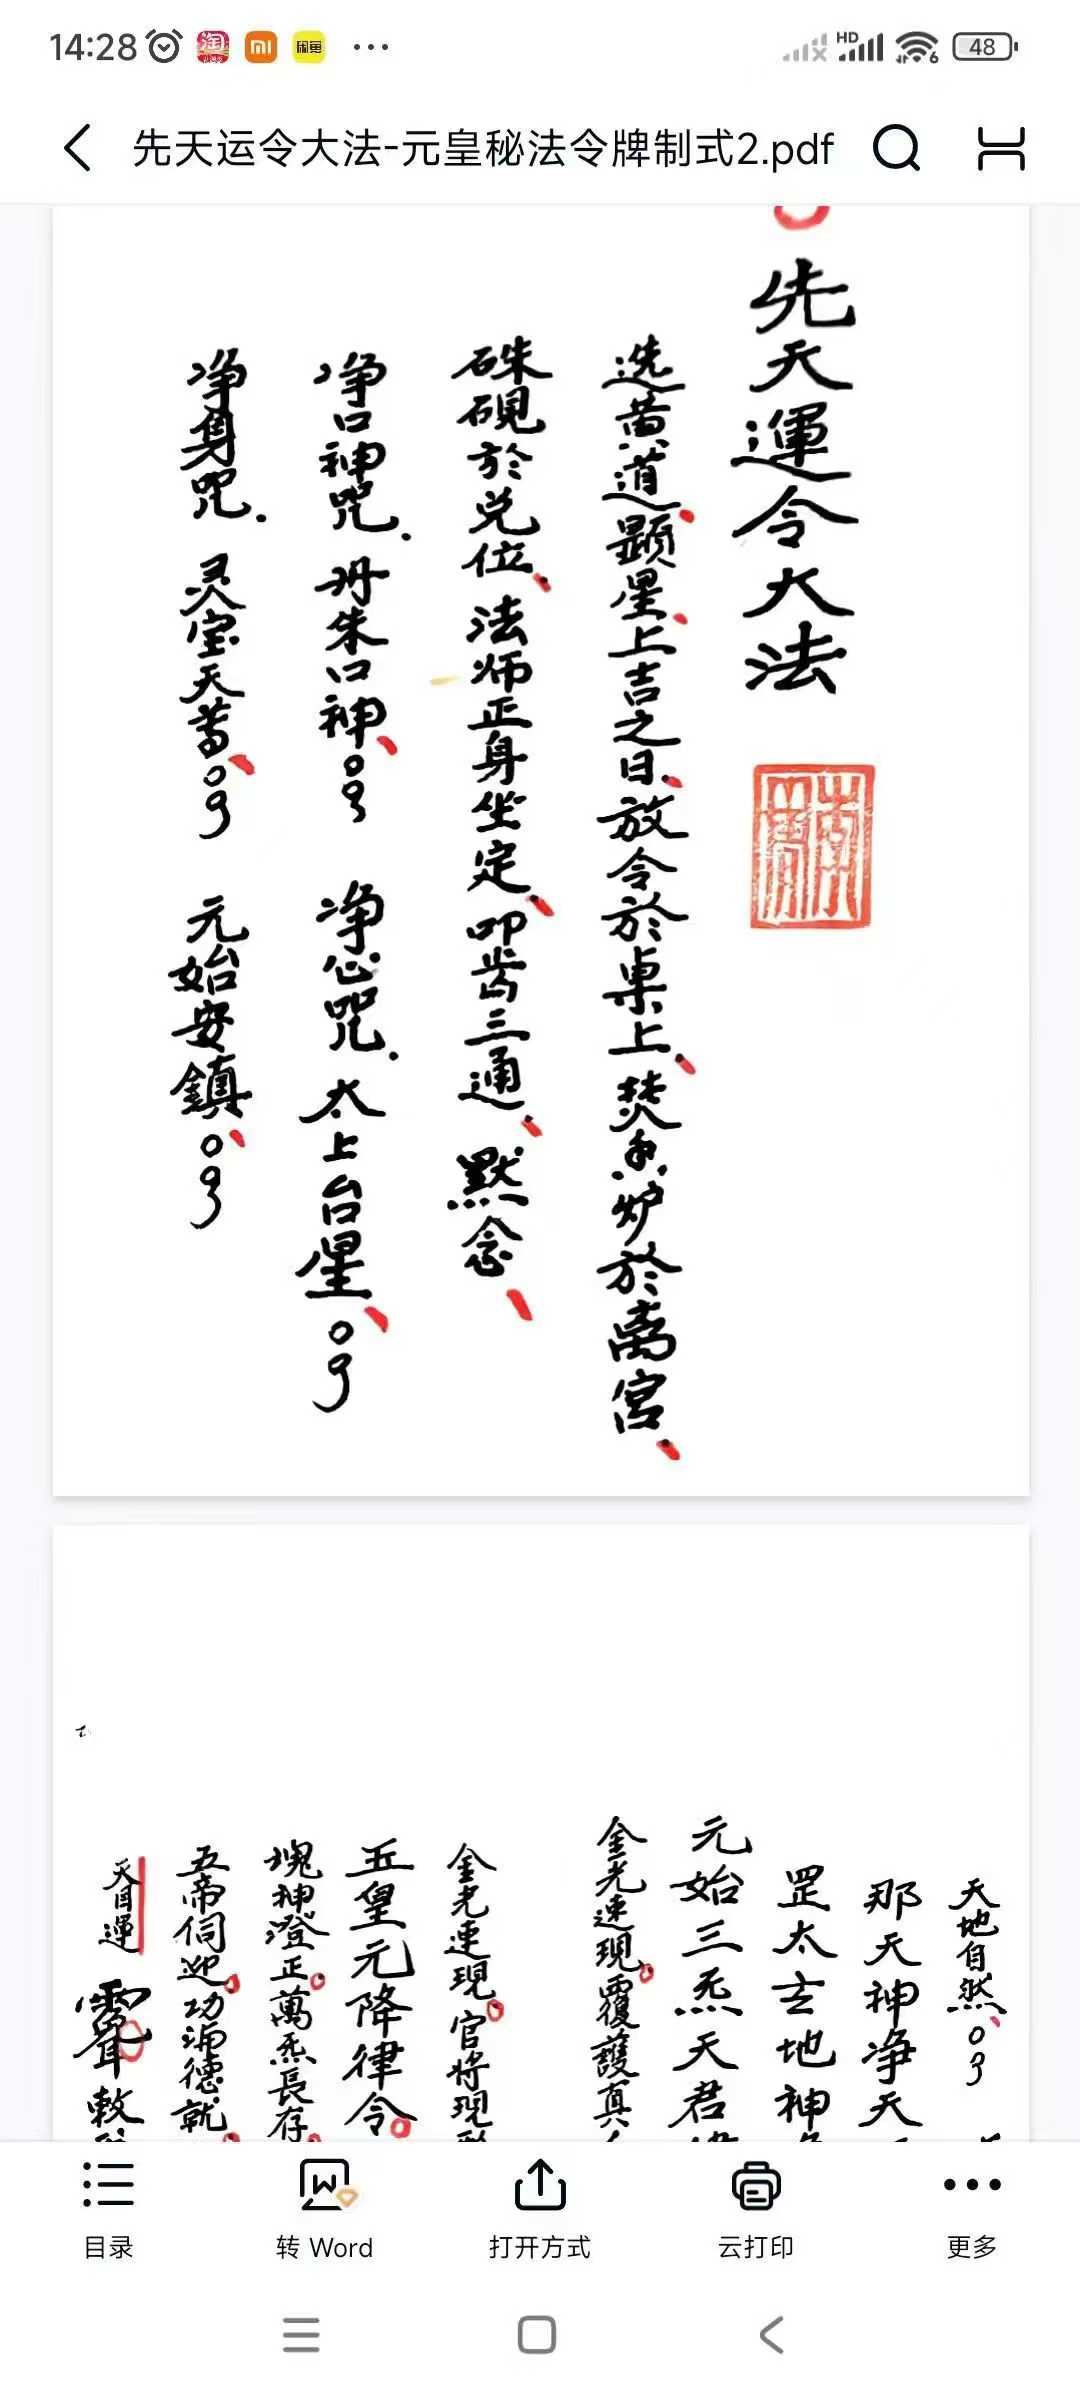 14:28
HD
6
48
先天运令大法-元皇秘法令牌制式2.pdf
先天運令大法
选黄道、顕星、上吉之日、放令於桌上、焚香炉於离宫、
硃硯於兑位、法师正身坐定、叩齿三通、默念、
净口神咒. 丹朱口神、 净心咒. 太上台星、
净身咒. 灵宝天尊、 元始安鎮、
天地自然、
那天神净天
罡太玄地神
元始三炁天君
金光速現。覆護真
金光速現。官将現
五皇元降律令。
魂神澄正。萬炁長存
五帝伺迎。功满德就
天目運
敕
目录
转 Word
打开方式
云打印
更多